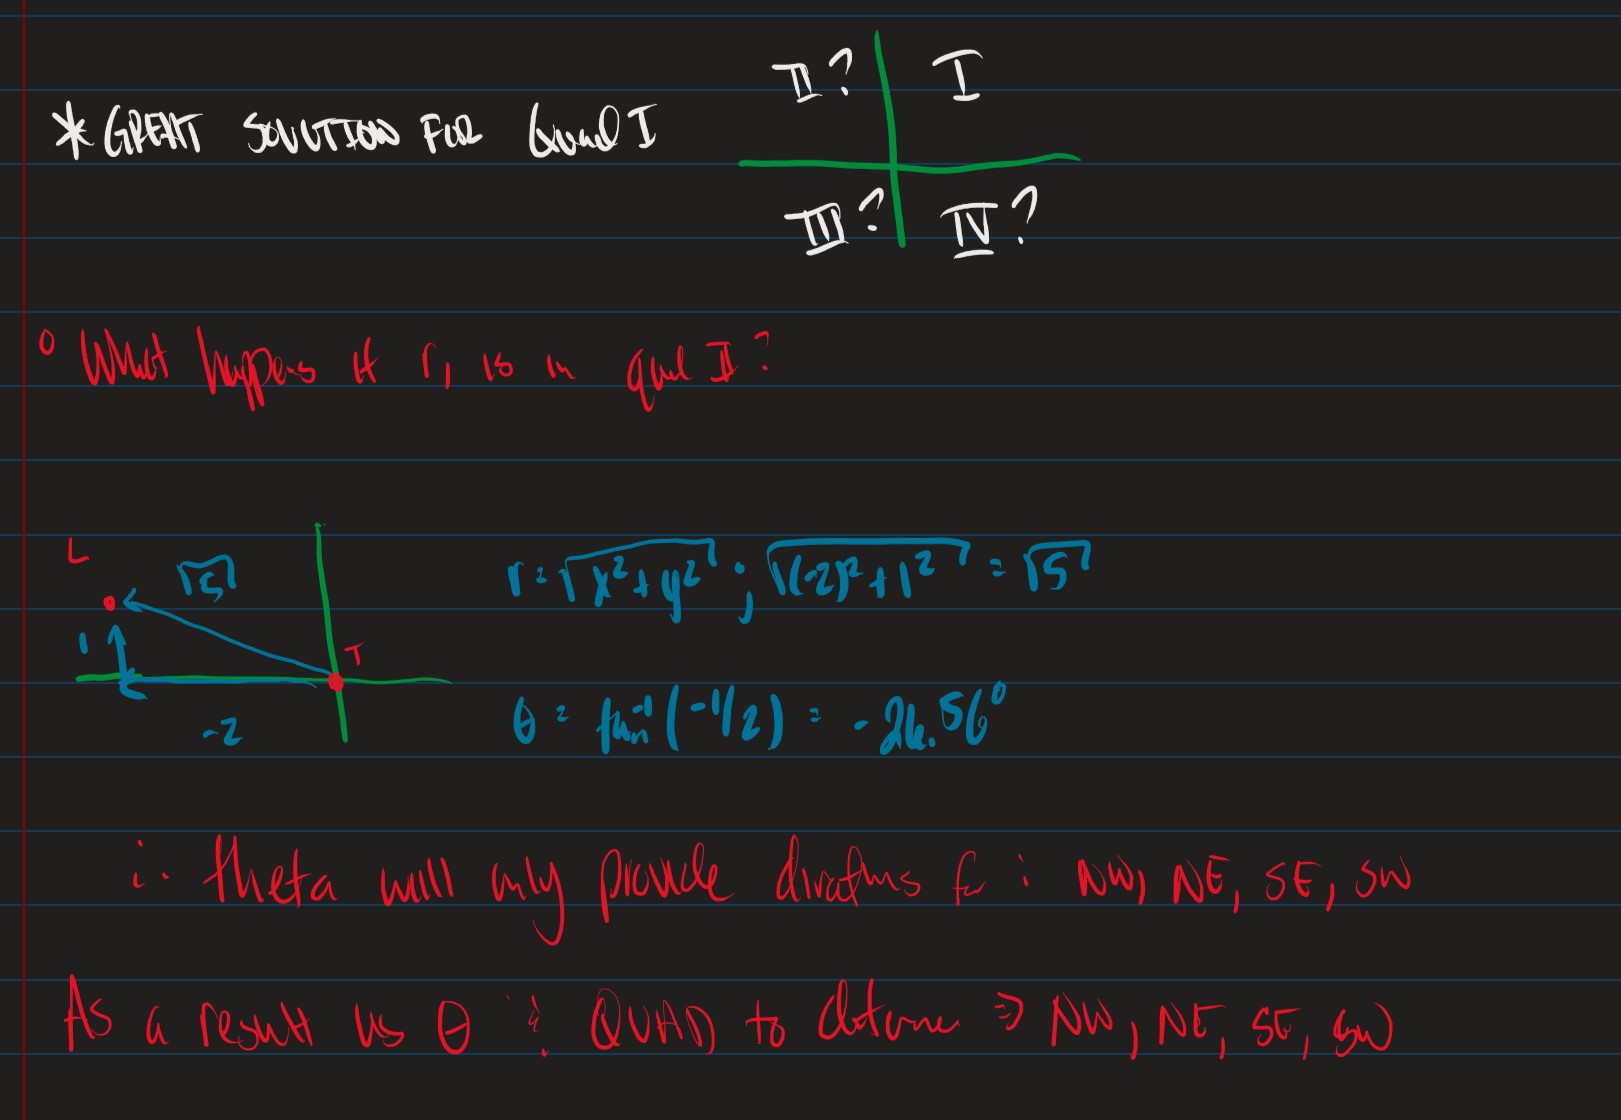 II? I
* GREAT SOLUTION FOR Quad I
III? IV?
o What happens if r₁ is in quad II?
L
√5
r = √x²+y² ; √(-2)²+1² = √5
1
T
-2
θ = tan⁻¹(-1/2) = -26.56°
∴ theta will only provide directions for : NW, NE, SE, SW
As a result us θ & QUAD to determine ⇒ NW, NE, SE, SW